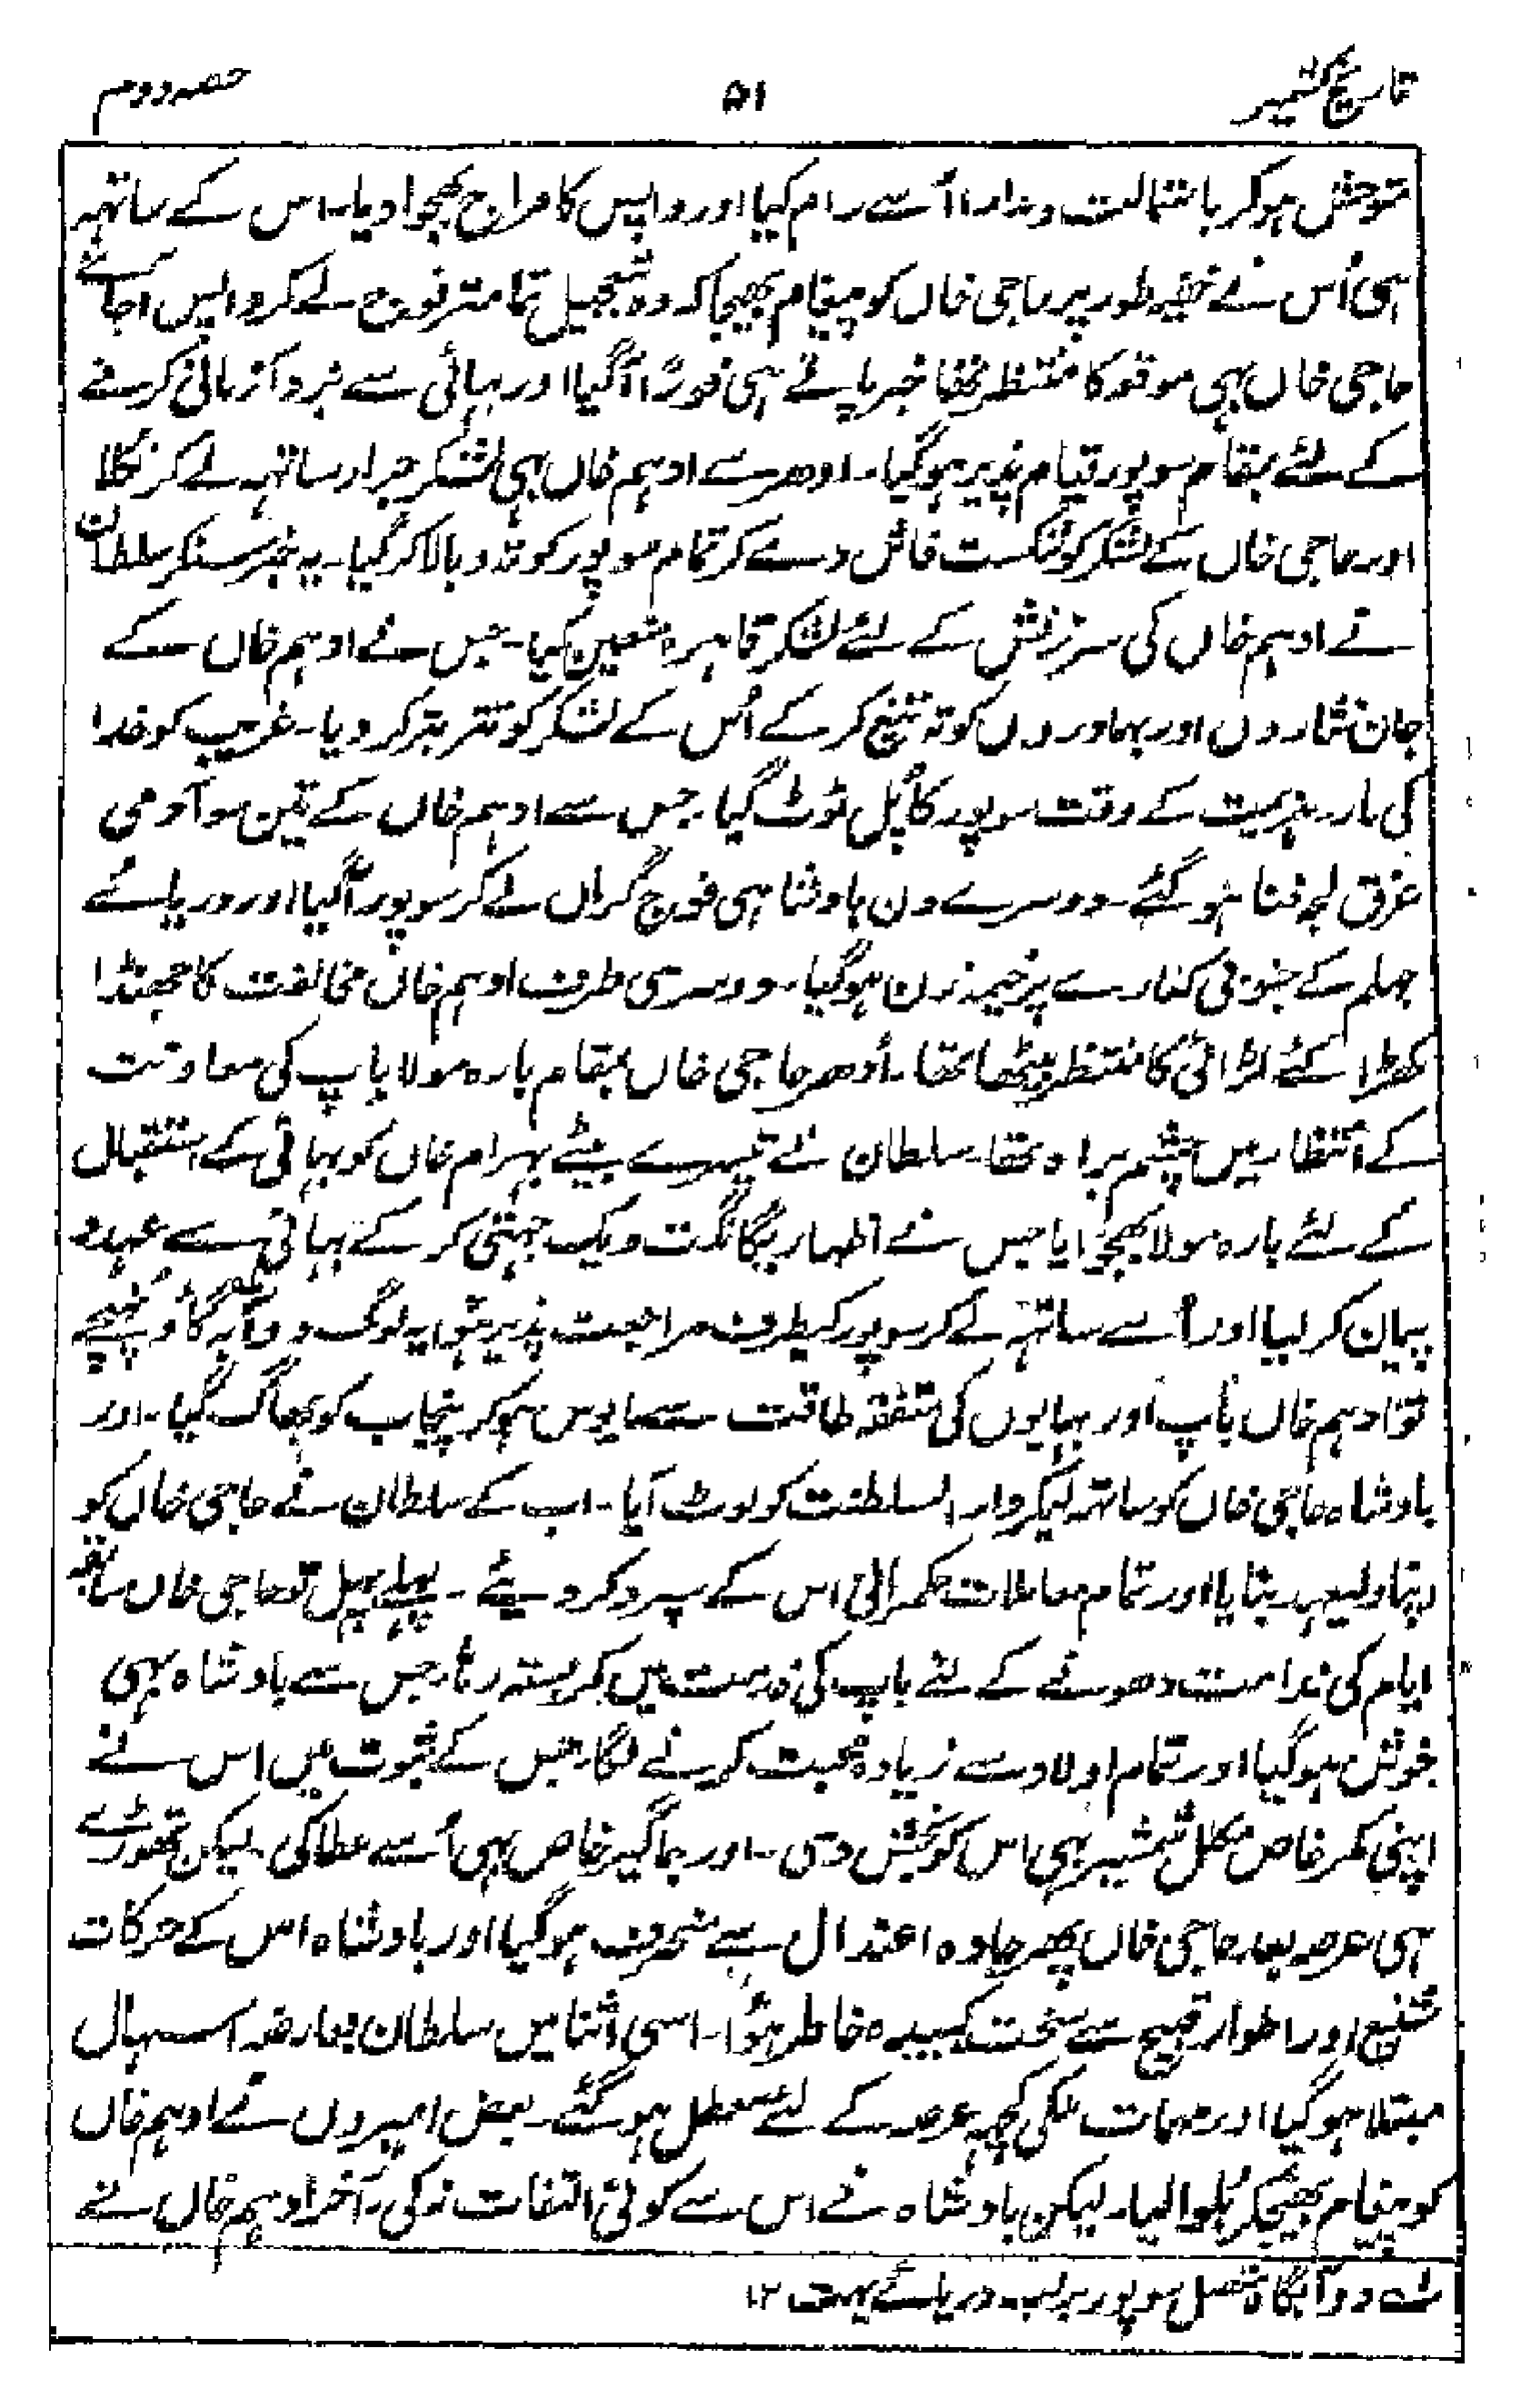 تاریخ کشمیر
۵۱
حصہ دوم
متوحش ہوکر باستمالت ومدارا اُسے رام کیا اور واپس کامراج بھجوا دیا۔ اس کے ساتہہ
ہی اُس نے خفیہ طور پر حاجی خاں کو پیغام بھیجا کہ وہ بتعجیل تمامتر فوج لے کر واپس آجائے
حاجی خاں بہی موقع کا منتظر تھا خبر پاتے ہی فوراً آگیا اور بہائی سے نبرد آزمائی کرنے
کے لئے بمقام سوپور قیام پذیر ہوگیا۔ اودھر سے ادہم خاں بہی لشکر جرار ساتہہ لے کر نکلا
اور حاجی خاں کے لشکر کو شکست فاش دے کر تمام سوپور کو تہ و بالا کر گیا۔ یہ خبر سنکر سلطان
نے ادہم خاں کی سرزنش کے لئے لشکر قاہرہ متعین کیا۔ جس نے ادہم خاں کے
جان نثاروں اور بہادروں کو تہ تیغ کر کے اُس کے لشکر کو تتر بتر کر دیا۔ غریب کو خدا
کی مار۔ ہزیمت کے وقت سوپور کا پُل ٹوٹ گیا۔ جس سے ادہم خاں کے تین سو آدمی
غرق لجہ فنا ہو گئے۔ دوسرے دن بادشاہ بہی فوج گراں لے کر سوپور آگیا اور دریائے
جہلم کے جنوبی کنارے پر خیمہ زن ہوگیا۔ دوسری طرف ادہم خاں مخالفت کا جھنڈا
کھڑا کئے لڑائی کا منتظر بیٹھا تھا۔ اُدھر حاجی خاں بمقام بارہ مولا باپ کی معاونت
کے انتظار میں چشم براہ تھا۔ سلطان نے تیسرے بیٹے بہرام خاں کو بہائی کے استقبال
کے لئے بارہ مولا بھجوایا جس نے اظہار یگانگت ویک جہتی کر کے بہائی سے عہد و
پیمان کر لیا اور اُسے ساتہہ لے کر سوپور کیطرف مراجعت پذیر ہوا یہ لوگ دوآبگاہ پہنچے
تو ادہم خاں باپ اور بہایوں کی متفقہ طاقت سے مایوس ہوکر پنجاب کو بھاگ گیا۔ اور
بادشاہ حاجی خاں کو ساتہہ لیکر دار السلطنت کو لوٹ آیا۔ اب کے سلطان نے حاجی خاں کو
اپنا ولیعہد بنایا اور تمام معاملات حکمرانی اس کے سپرد کر دیئے۔ پہلے پہل تو حاجی خاں سابقہ
ایام کی ندامت دھونے کے لئے باپ کی خدمت میں کمر بستہ رہا۔ جس سے بادشاہ بہی
خوش ہوگیا اور تمام اولاد سے زیادہ محبت کرنے لگا۔ جس کے ثبوت میں اس نے
اپنی کمر خاص مکلل شمشیر بہی اس کو بخش دی۔ اور جاگیر خاص بہی اُسے عطا کی۔ لیکن تھوڑے
ہی عرصہ بعد حاجی خاں پھر جادہ اعتدال سے منحرف ہوگیا اور بادشاہ اس کے حرکات
شنیع اور اطوار قبیح سے سخت کبیدہ خاطر ہوا۔ اسی اثنا میں سلطان بعارضہ اسہال
مبتلا ہوگیا اور مہمات ملکی کچہہ عرصہ کے لئے معطل ہو گئے۔ بعض امیروں نے ادہم خاں
کو پیغام بھیجکر بُلوا لیا۔ لیکن بادشاہ نے اس سے کوئی التفات نہ کی۔ آخر ادہم خاں نے
لہ دوآبگاہ متصل سوپور بر لب دریائے بہت ۱۲